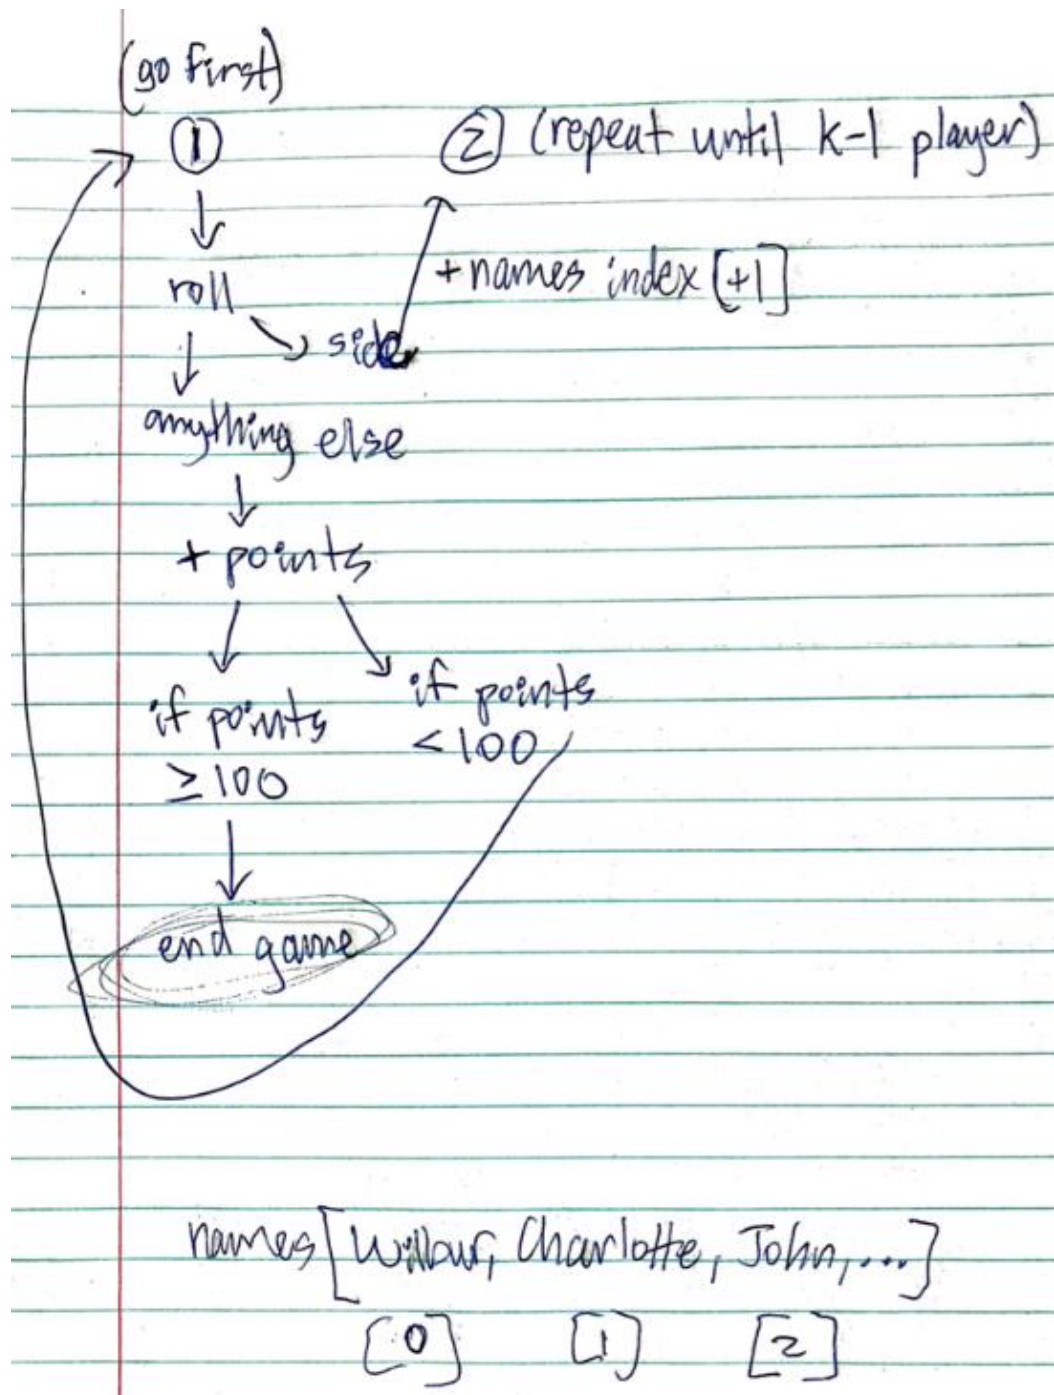 (go first)
① ② (repeat until k-1 player)
roll
+names index [+1]
side
anything else
+ points
if points
≥100
if points
<100
end game
names [Wilbur, Charlotte, John, ...]
[0] [1] [2]